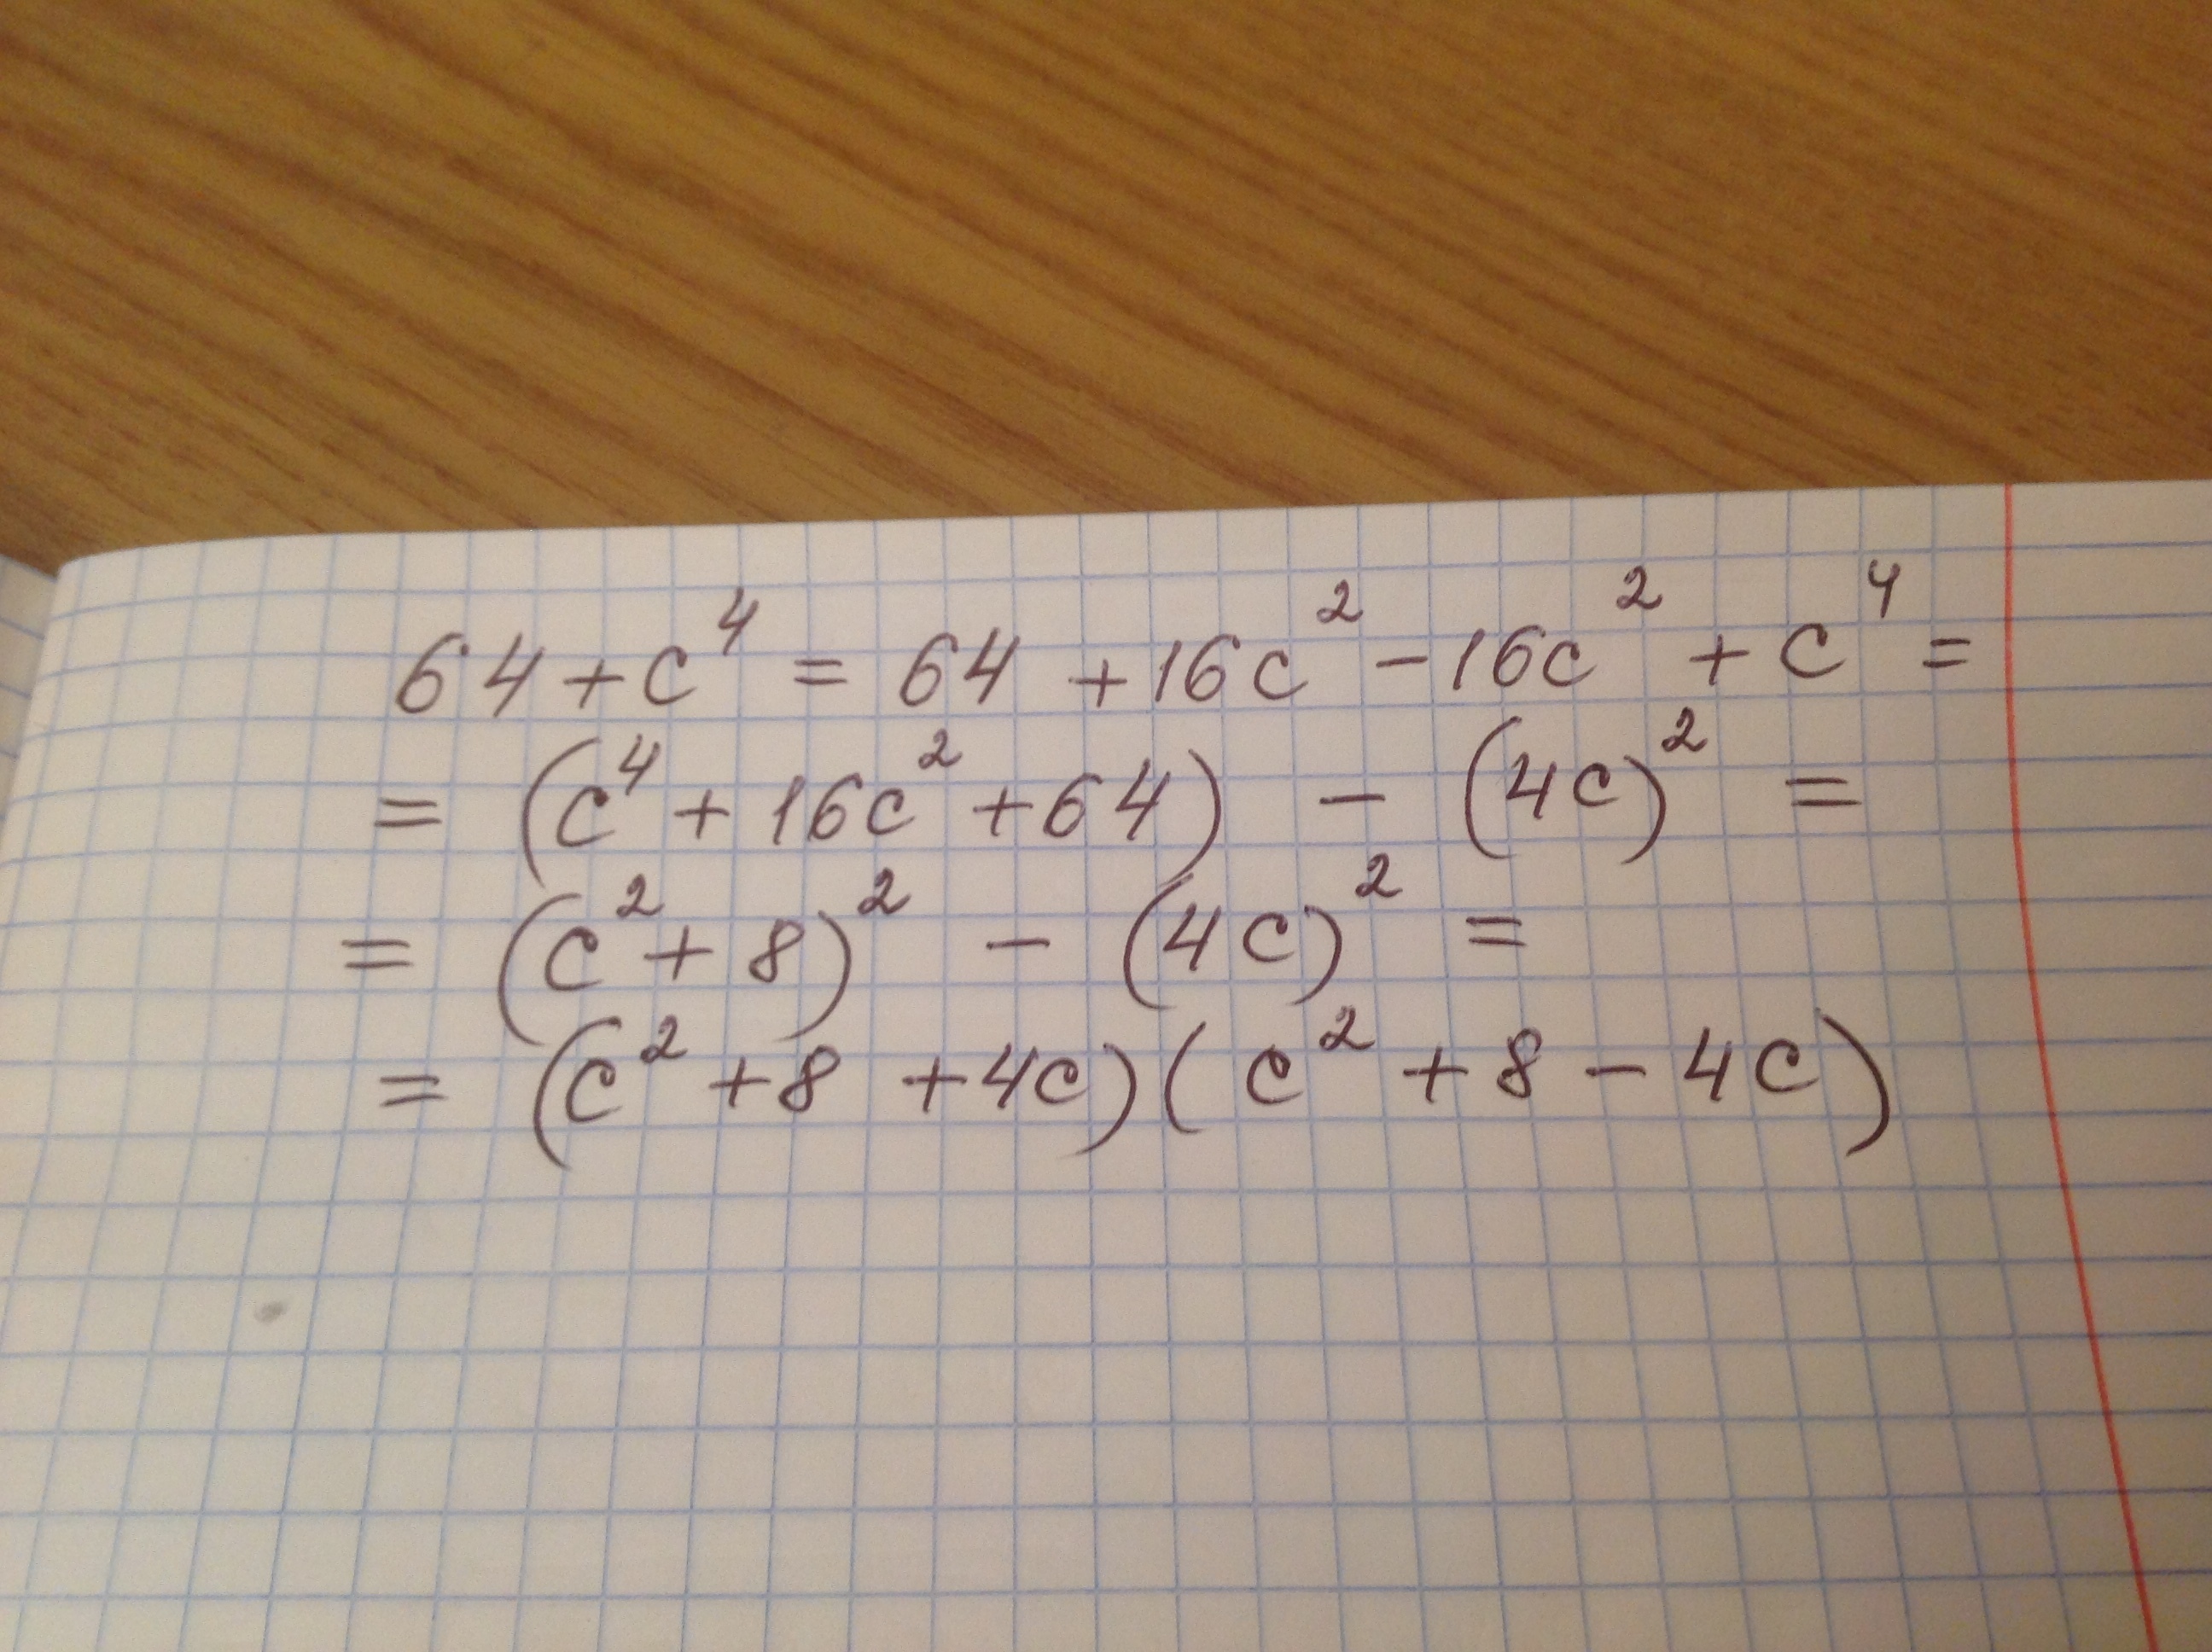 64 + c⁴ = 64 + 16c² - 16c² + c⁴ =
= (c⁴ + 16c² + 64) - (4c)² =
= (c² + 8)² - (4c)² =
= (c² + 8 + 4c)(c² + 8 - 4c)